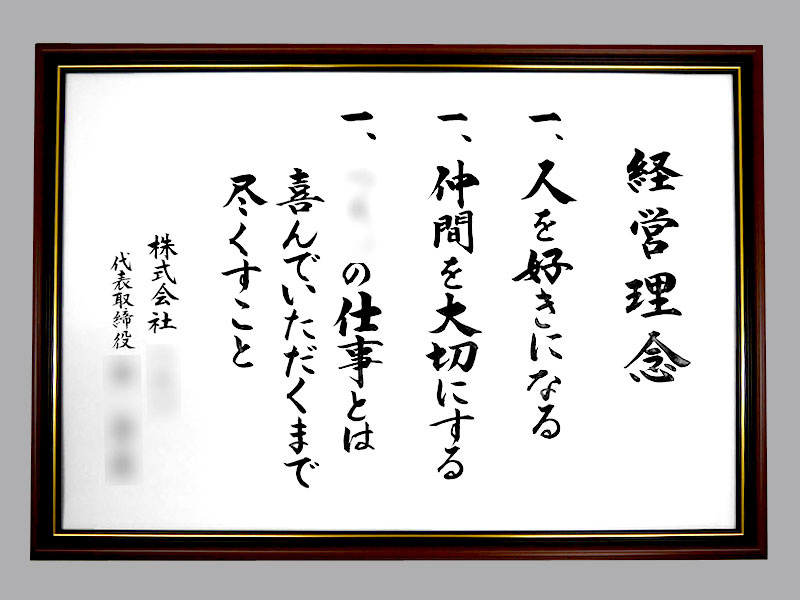 経営理念
一、人を好きになる
一、仲間を大切にする
一、の仕事とは
喜んでいただくまで
尽くすこと
株式会社
代表取締役